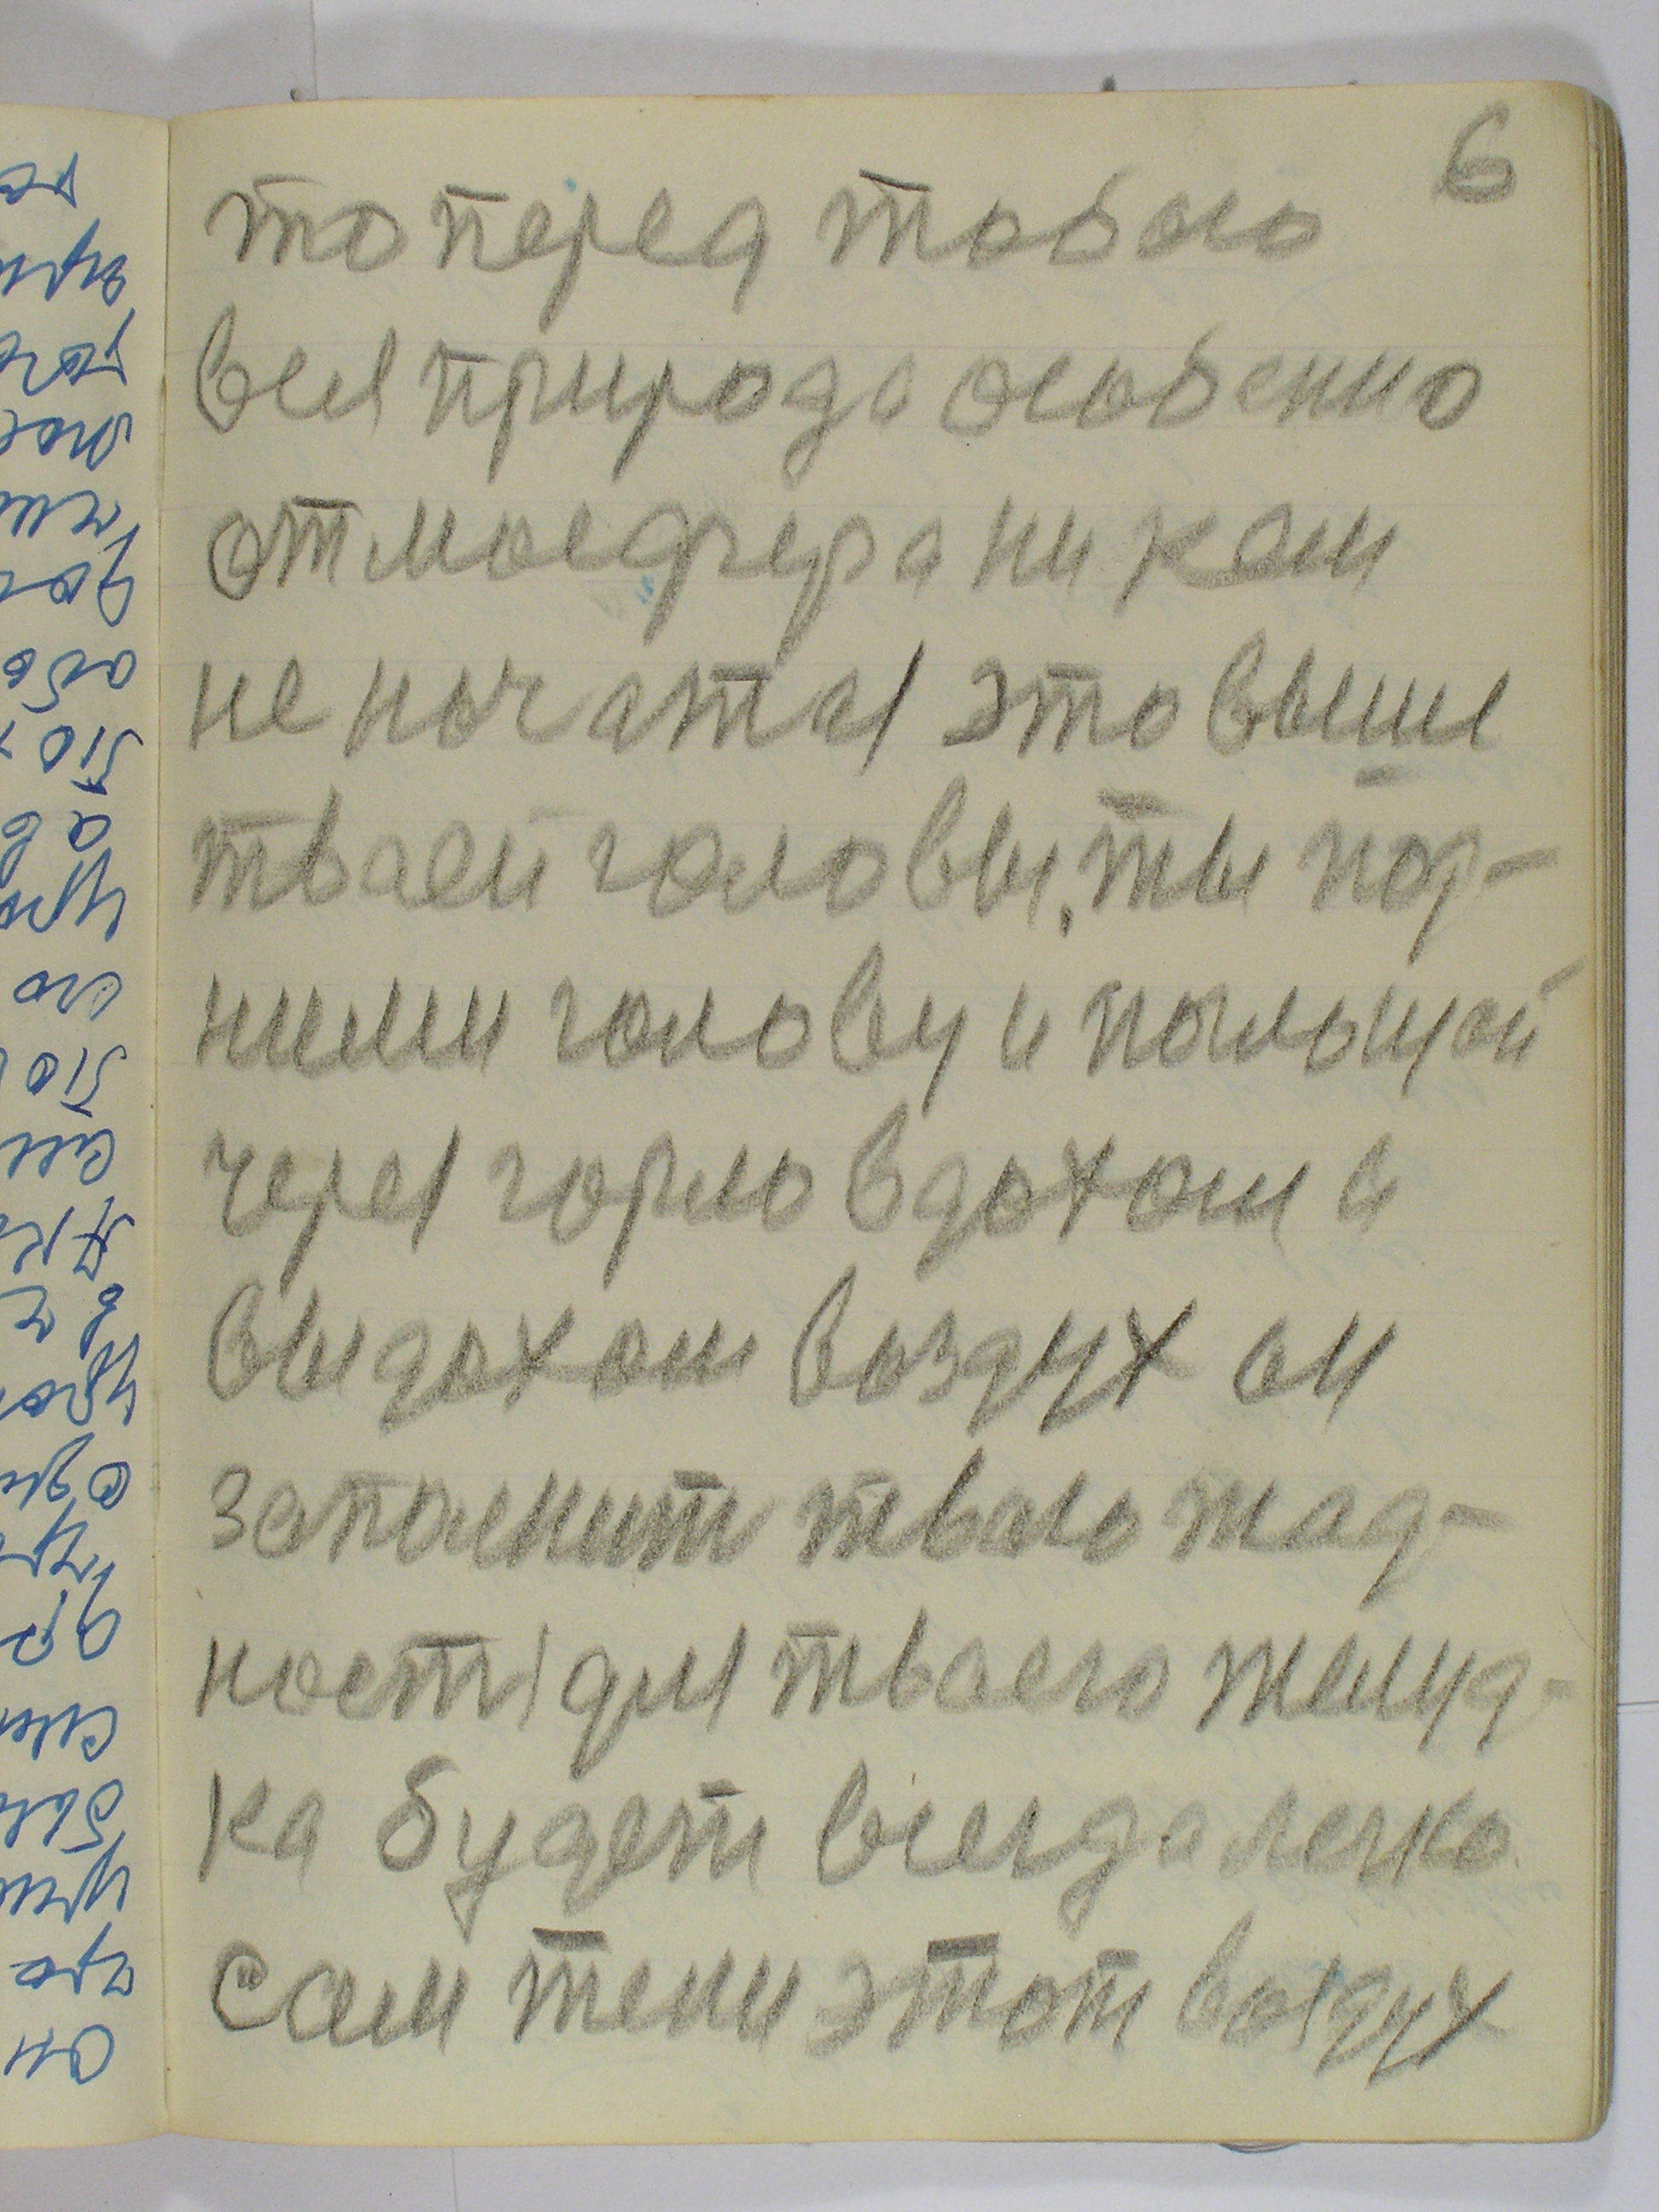 6
то перед тобою
вся природа особенно
отмосфера никем
не початая это выше
твоей головы, ты под-
ними голову и поглощай
через горло вдохом и
выдохом воздух он
заполнит твою жад-
ность для твоего желуд-
ка будет всегда легко
сам тяни этот воздух